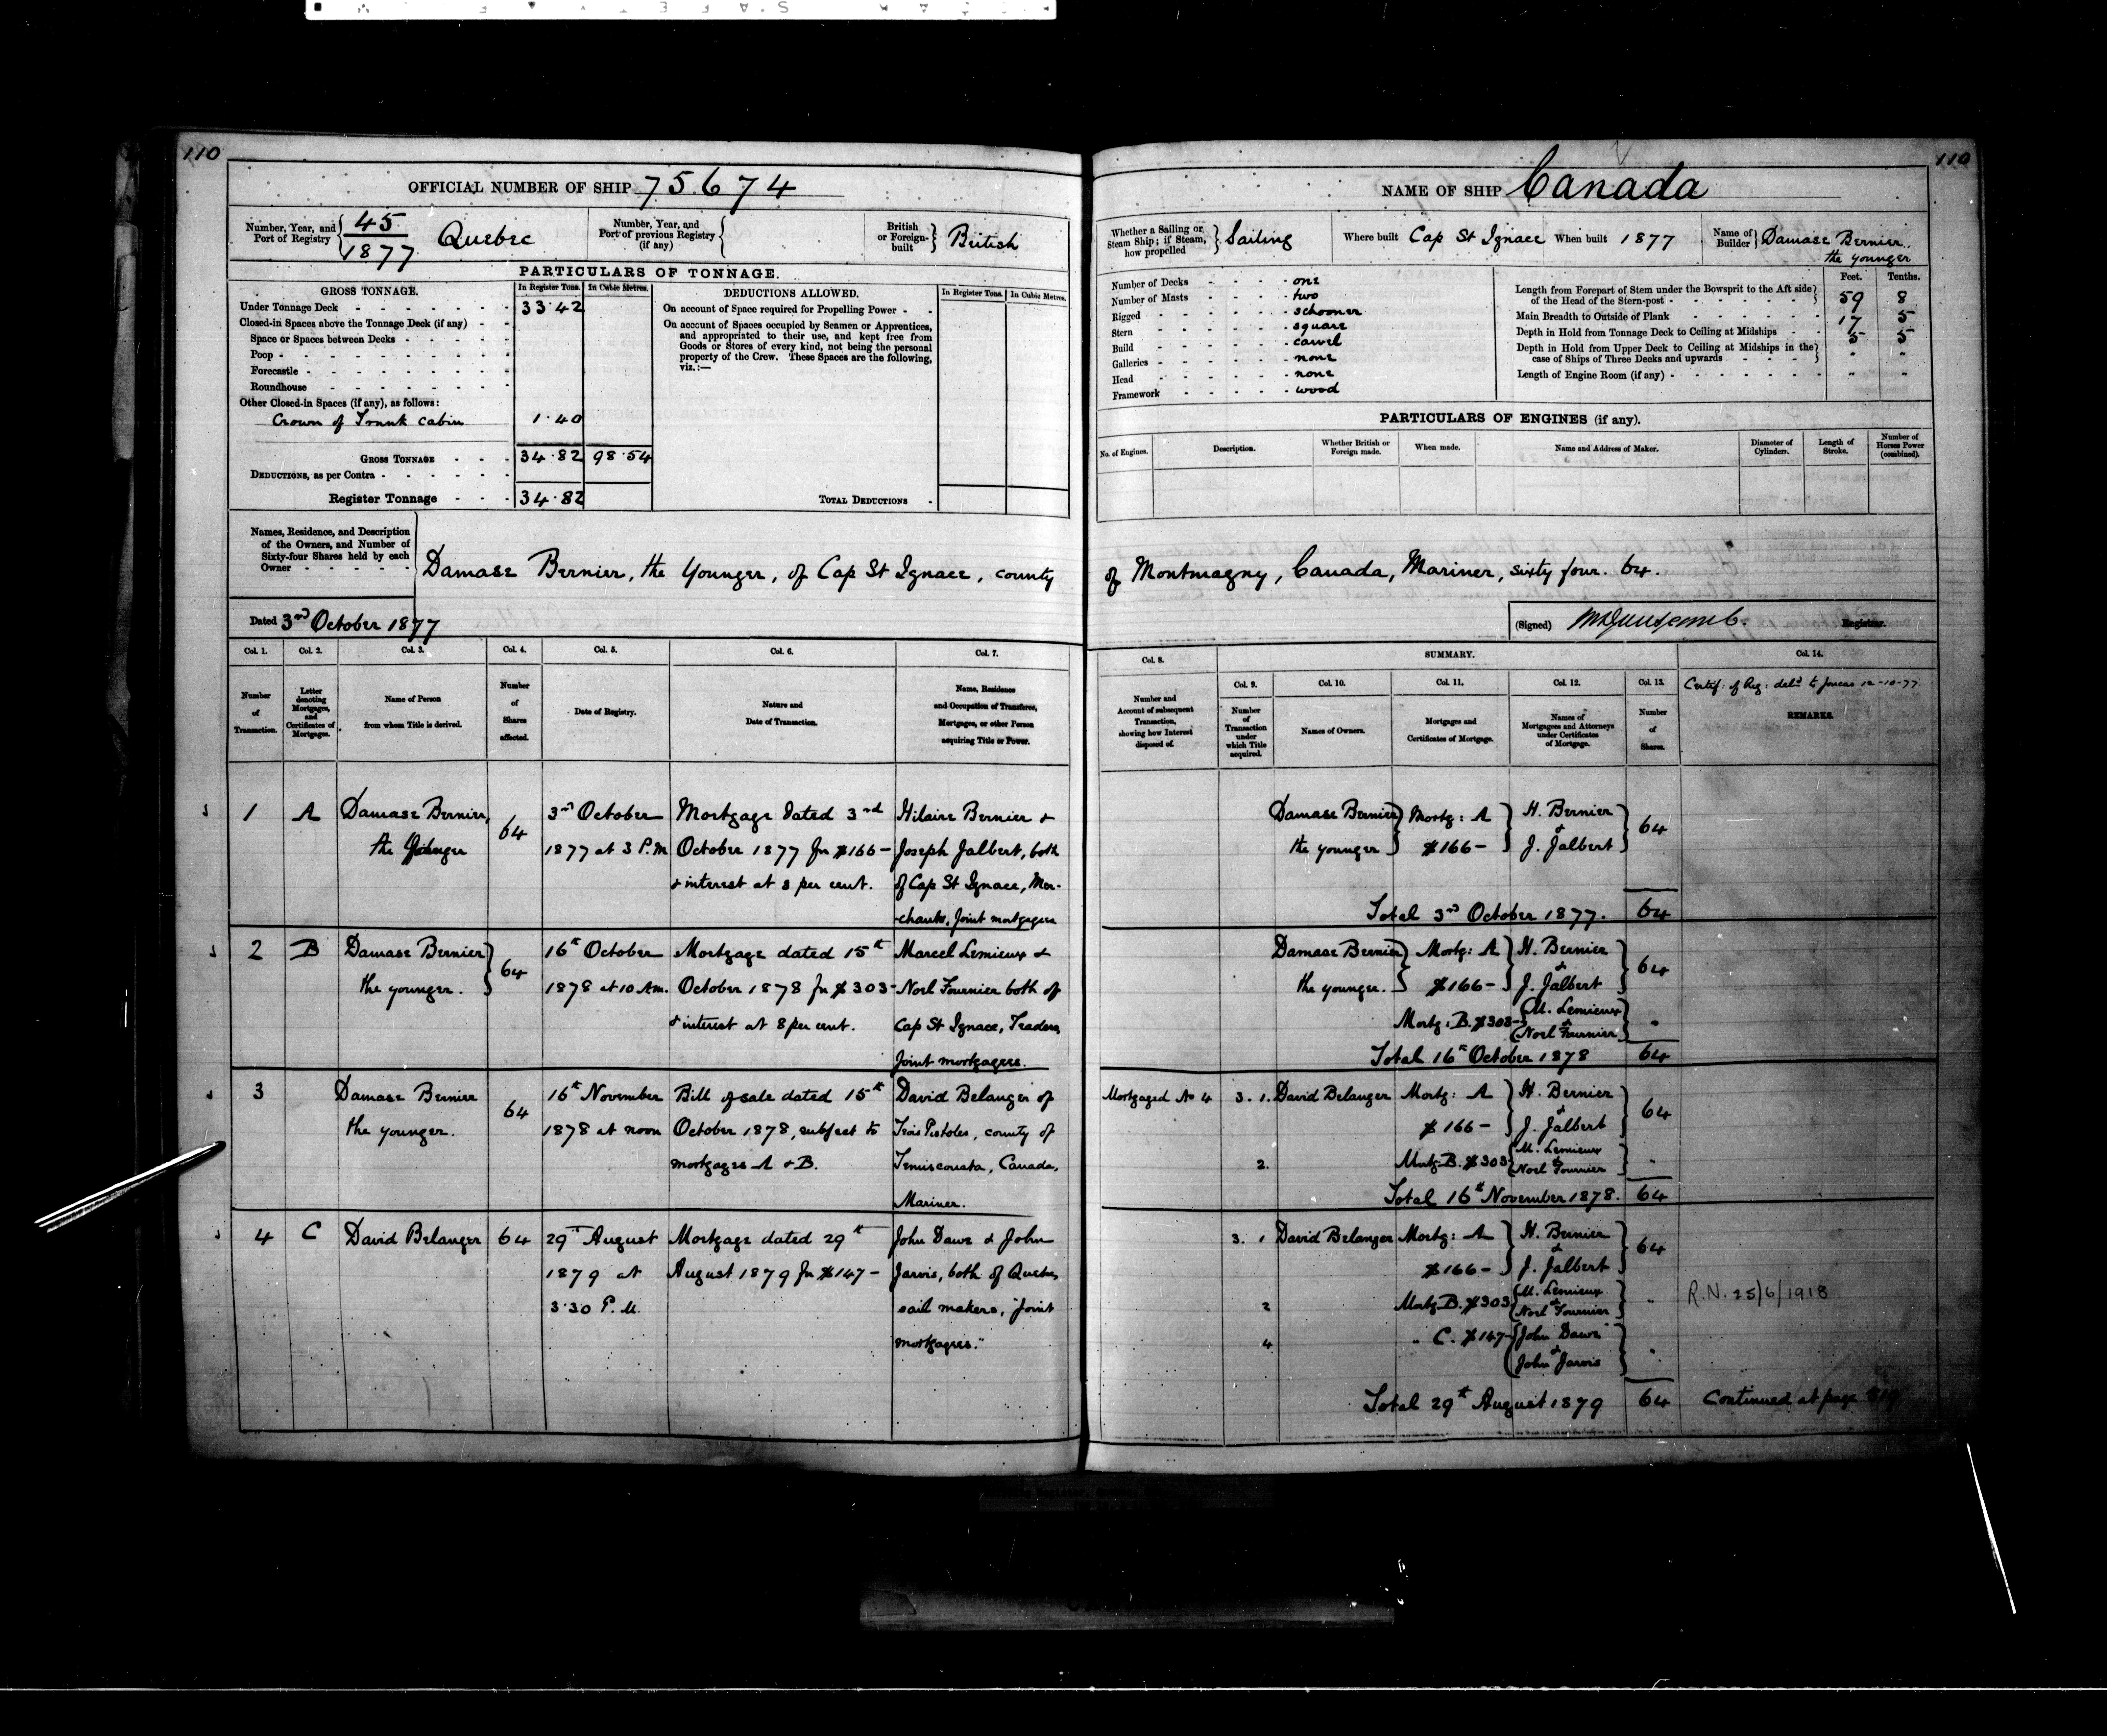 110
OFFICIAL NUMBER OF SHIP 75.674
Number, Year, and Port of Registry
45
1877
Quebec
Number, Year, and Port of previous Registry (if any)
British or Foreign-built
British
PARTICULARS OF TONNAGE.
GROSS TONNAGE.
In Register Tons.
In Cubic Metres.
DEDUCTIONS ALLOWED.
In Register Tons.
In Cubic Metres.
Under Tonnage Deck - 33.42
Closed-in Spaces above the Tonnage Deck (if any) -
Space or Spaces between Decks -
Poop -
Forecastle -
Roundhouse -
Other Closed-in Spaces (if any), as follows:
Crown of Trunk cabin 1.40
GROSS TONNAGE - 34.82 98.54
DEDUCTIONS, as per Contra -
Register Tonnage - 34.82
On account of Space required for Propelling Power -
On account of Spaces occupied by Seamen or Apprentices,
and appropriated to their use, and kept free from
Goods or Stores of every kind, not being the personal
property of the Crew. These Spaces are the following,
viz.:—
TOTAL DEDUCTIONS -
Names, Residence, and Description
of the Owners, and Number of
Sixty-four Shares held by each
Owner -
Damase Bernier, the Younger, of Cap St Ignace, county
Dated 3rd October 1877
Col. 1. Col. 2. Col. 3. Col. 4. Col. 5. Col. 6. Col. 7.
Number of Transaction.
Letter denoting Mortgages, and Certificates of Mortgages.
Name of Person from whom Title is derived.
Number of Shares affected.
Date of Registry.
Nature and Date of Transaction.
Name, Residence and Occupation of Transferee, Mortgagee, or other Person acquiring Title or Power.
1 A Damase Bernier, 64 3rd October Mortgage dated 3rd Hilaire Bernier &
the Younger 1877 at 3 P.M October 1877 for $166- Joseph Jalbert, both
& interest at 8 per cent. of Cap St Ignace, Mer-
chants, Joint mortgagees
2 B Damase Bernier 64 16th October Mortgage dated 15th Marcel Lemieux &
the younger. 1878 at 10 Am. October 1878 for $303- Noel Fournier both of
& interest at 8 per cent. Cap St Ignace, Traders,
Joint mortgagees.
3 Damase Bernier 64 16th November Bill of sale dated 15th David Belanger of
the younger. 1878 at noon October 1878, subject to Trois Pistoles, county of
mortgages A & B. Temiscouata, Canada,
Mariner.
4 C David Belanger 64 29th August Mortgage dated 29th John Dawe & John
1879 at August 1879 for $147- Jarvis, both of Quebec,
3.30 P.M. sail makers, "Joint
mortgagees."
110
NAME OF SHIP Canada
Whether a Sailing or Steam Ship; if Steam, how propelled
Sailing
Where built Cap St Ignace
When built 1877
Name of Builder
Damase Bernier,
the younger
Number of Decks - one
Number of Masts - two
Rigged - schooner
Stern - square
Build - carvel
Galleries - none
Head - none
Framework - wood
Feet. Tenths.
Length from Forepart of Stem under the Bowsprit to the Aft side
of the Head of the Stern-post - 59 8
Main Breadth to Outside of Plank 17 5
Depth in Hold from Tonnage Deck to Ceiling at Midships - 5 5
Depth in Hold from Upper Deck to Ceiling at Midships in the
case of Ships of Three Decks and upwards - " "
Length of Engine Room (if any) - " "
PARTICULARS OF ENGINES (if any).
No. of Engines.
Description.
Whether British or Foreign made.
When made.
Name and Address of Maker.
Diameter of Cylinders.
Length of Stroke.
Number of Horses Power (combined).
of Montmagny, Canada, Mariner, sixty four. 64.
(Signed) Registrar.
Col. 8.
SUMMARY.
Col. 14.
Col. 9. Col. 10. Col. 11. Col. 12. Col. 13.
Number and Account of subsequent Transaction, showing how Interest disposed of.
Number of Transaction under which Title acquired.
Names of Owners.
Mortgages and Certificates of Mortgage.
Names of Mortgagees and Attorneys under Certificates of Mortgage.
Number of Shares.
Certif: of Reg: deld to 12-10-77.
REMARKS.
Damase Bernier Mortg: A H. Bernier 64
the younger $166- & J. Jalbert
Total 3rd October 1877. 64
Damase Bernier Mortg: A H. Bernier 64
the younger. $166- & J. Jalbert
Mortg: B. $303- M. Lemieux & Noel Fournier "
Total 16th October 1878 64
Mortgaged No 4 3. 1. David Belanger Mortg: A H. Bernier 64
$166- & J. Jalbert
2. Mortg. B. $303- M. Lemieux & Noel Fournier "
Total 16th November 1878. 64
3. 1 David Belanger Mortg: A H. Bernier 64
$166- & J. Jalbert
2 Mortg. B. $303 M. Lemieux & Noel Fournier "
R.N. 25/6/1918
4 " C. $147- John Dawe & John Jarvis "
Total 29th August 1879 64
Continued at page